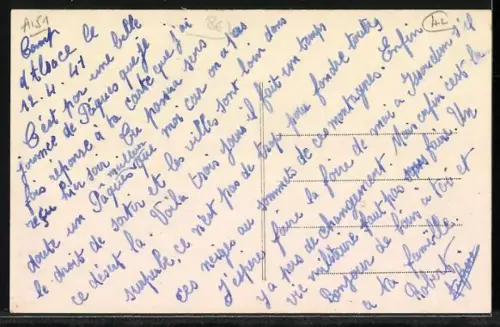 A151
86
AL
Camp
d'Alsace le
12. 4. 41
C'est par une belle
journée de Pâques que je
fais réponse à ta carte que j'ai
reçu hier soir. Tu passes sans
doute un meilleur Pâques que moi car on a pas
le droit de sortir et les villes sont loin dans
ce désert la. Voilà trois jours il fait un temps
superbe, ce n'est pas de trop pour fondre toutes
ces neiges au sommets de ces montagnes. Enfin
j'espère faire la foire de mai a Issoudun s'il
y a pas de changement. Mais enfin c'est la
vie militaire faut pas s'en faire. Un
Bonjour de loin a toi et
a ta famille.
Robert